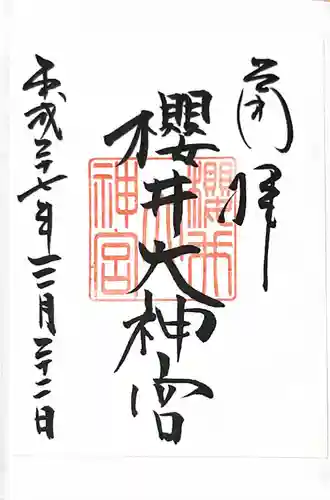 拝
櫻井大神宮
平成二十七年一二月二十二日
櫻井
大
神宮